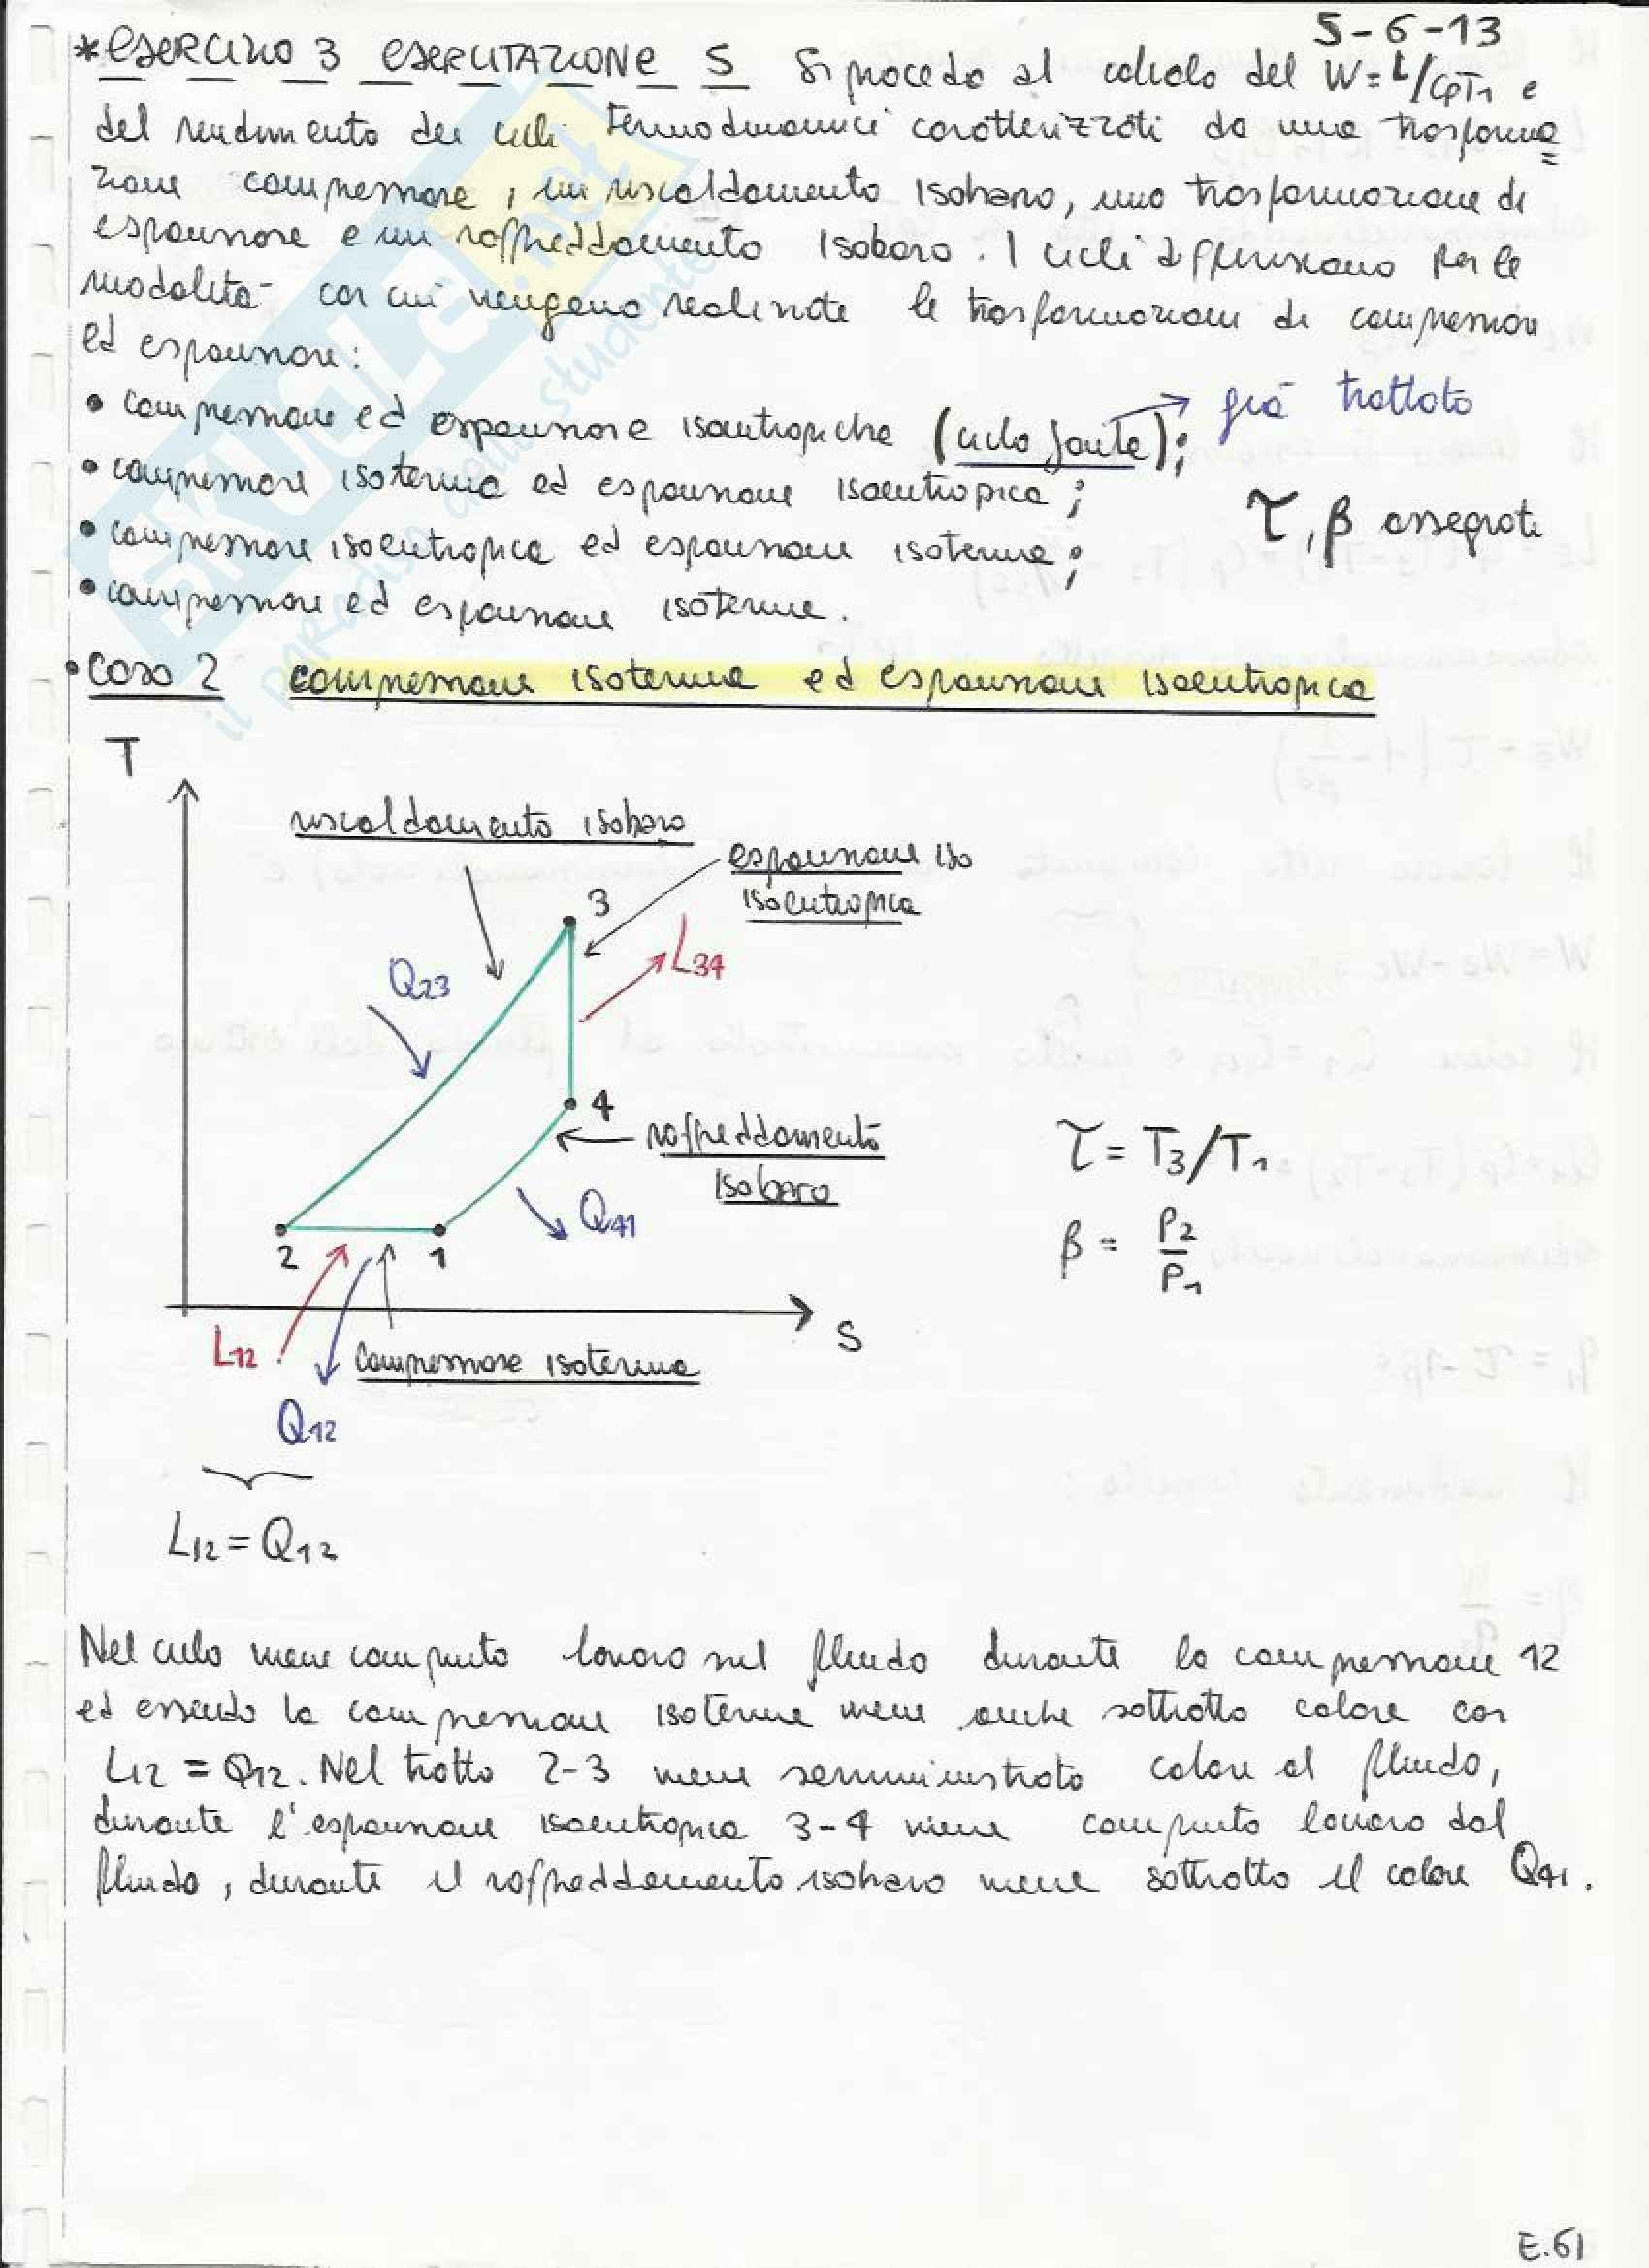 5-6-13
*ESERCIZIO 3 ESERCITAZIONE 5 Si procede al calcolo del W=L/CpT1 e
del rendimento dei cicli termodinamici caratterizzati da una trasforma=
zione compressione, un riscaldamento isobaro, una trasformazione di
espansione e un raffreddamento isobaro. I cicli differiscono per le
modalità con cui vengono realizzate le trasformazioni di compressione
ed espansione:
• compressione ed espansione isoentropiche (ciclo Joule); → già trattato
• compressione isoterma ed espansione isoentropica;
τ, β assegnati
• compressione isoentropica ed espansione isoterma;
• compressione ed espansione isoterme.
• CASO 2 compressione isoterma ed espansione isoentropica
T
riscaldamento isobaro
espansione iso
isoentropica
3
L34
Q23
4
raffreddamento
isobaro
τ = T3/T1
Q41
β = P2/P1
2 1
S
L12
compressione isoterma
Q12
L12 = Q12
Nel ciclo viene compiuto lavoro sul fluido durante la compressione 12
ed essendo la compressione isoterma viene anche sottratto calore con
L12 = Q12. Nel tratto 2-3 viene somministrato calore al fluido,
durante l'espansione isoentropica 3-4 viene compiuto lavoro dal
fluido, durante il raffreddamento isobaro viene sottratto il calore Q41.
E.61
SKUOLA.net
il paradiso dello studente